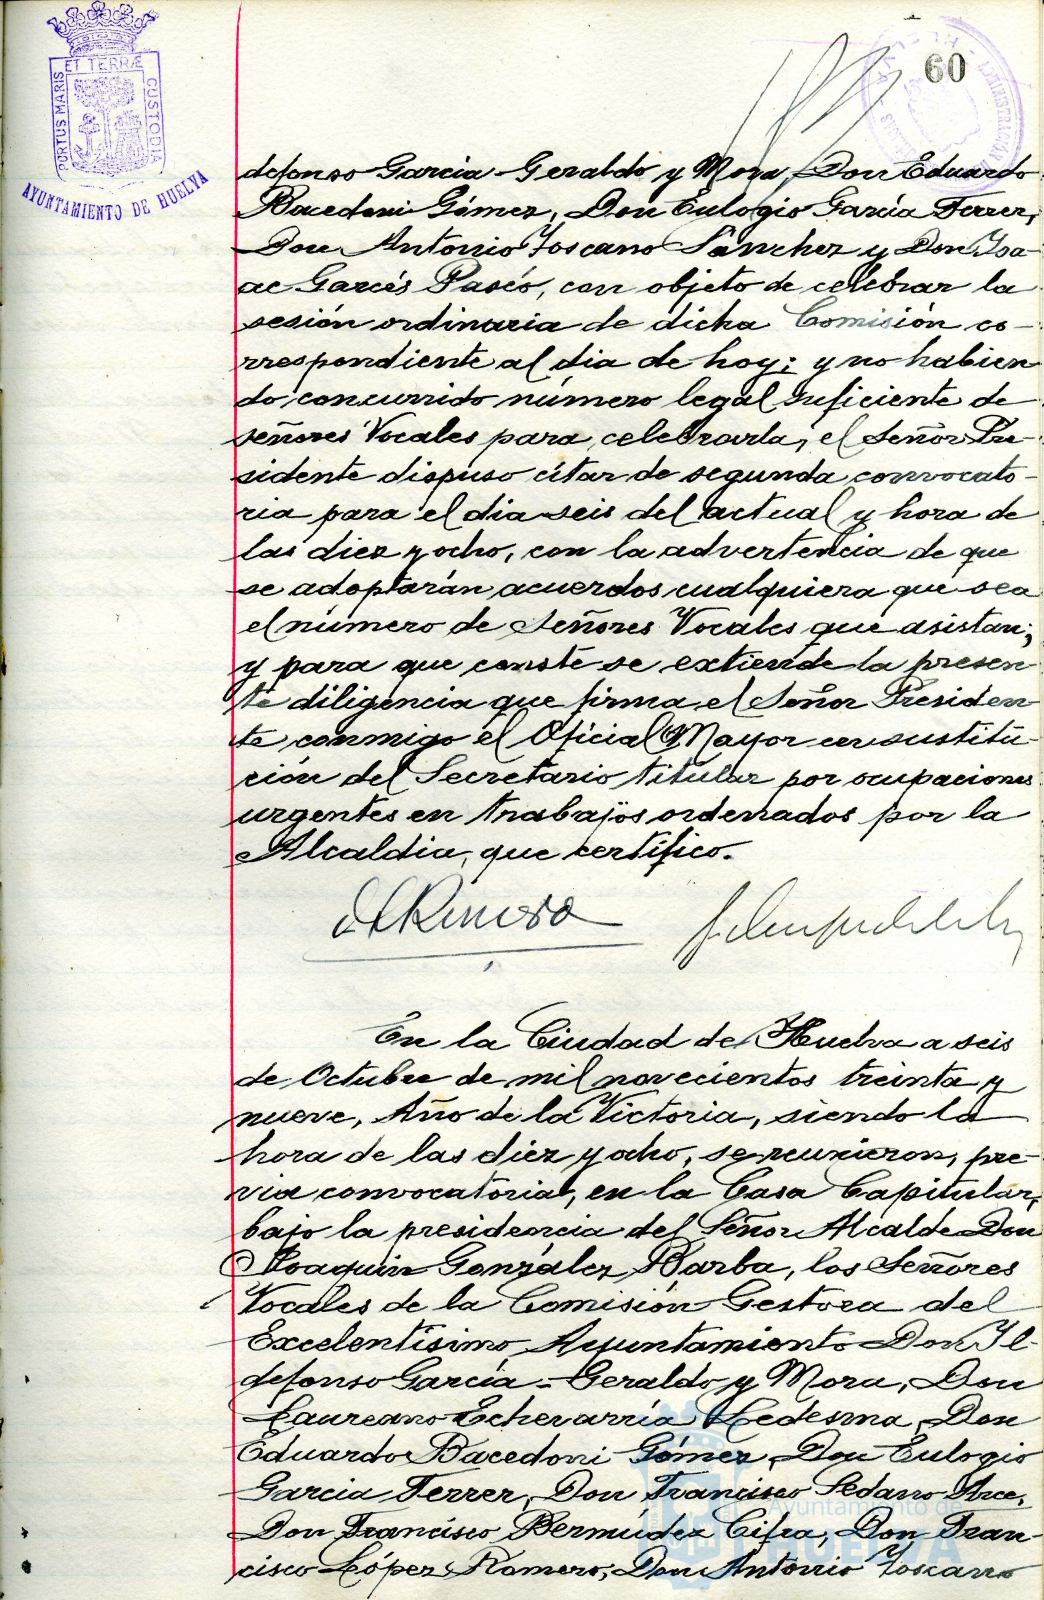 60
PORTUS MARIS
ET TERRÆ
CUSTODIA
AYUNTAMIENTO DE HUELVA
defonso Garcia-Geraldo y Mora, Don Eduardo
Bacedoni Gómez, Don Eulogio García Ferrer,
Don Antonio Toscano Sánchez y Don Isa-
ac Garcés Paseó, con objeto de celebrar la
sesión ordinaria de dicha Comisión co-
rrespondiente al dia de hoy; y no habien
do concurrido número legal suficiente de
señores Vocales para celebrarla, el Señor Pre-
sidente dispuso citar de segunda convocato-
ria para el dia seis del actual y hora de
las diez y ocho, con la advertencia de que
se adoptarán acuerdos cualquiera que sea
el número de Señores Vocales que asistan;
y para que conste se extiende la presen-
te diligencia que firma el Señor Presiden-
te conmigo el Oficial Mayor en sustitu-
ción del Secretario titular por ocupaciones
urgentes en trabajos ordenados por la
Alcaldia, que certifico.
En la Ciudad de Huelva a seis
de Octubre de mil novecientos treinta y
nueve, Año de la Victoria, siendo la
hora de las diez y ocho, se reunieron, pre-
via convocatoria, en la Casa Capitular,
bajo la presidencia del Señor Alcalde Don
Joaquin González Barba, los Señores
Vocales de la Comisión Gestora del
Excelentísimo Ayuntamiento Don Il-
defonso García-Geraldo y Mora, Don
Laureano Echevarría Ledesma, Don
Eduardo Bacedoni Gómez, Don Eulogio
Garcia Ferrer, Don Francisco Sedano Arce,
Don Francisco Bermúdez Cifra, Don Fran-
cisco López Romero, Don Antonio Toscano
Ayuntamiento de
HUELVA